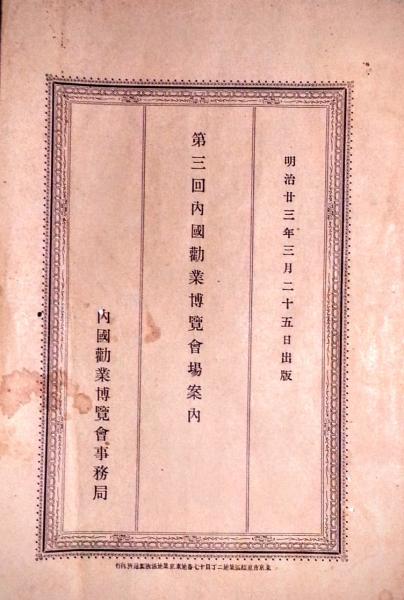 明治廿三年三月二十五日出版
第三回內國勸業博覽會場案內
內國勸業博覽會事務局